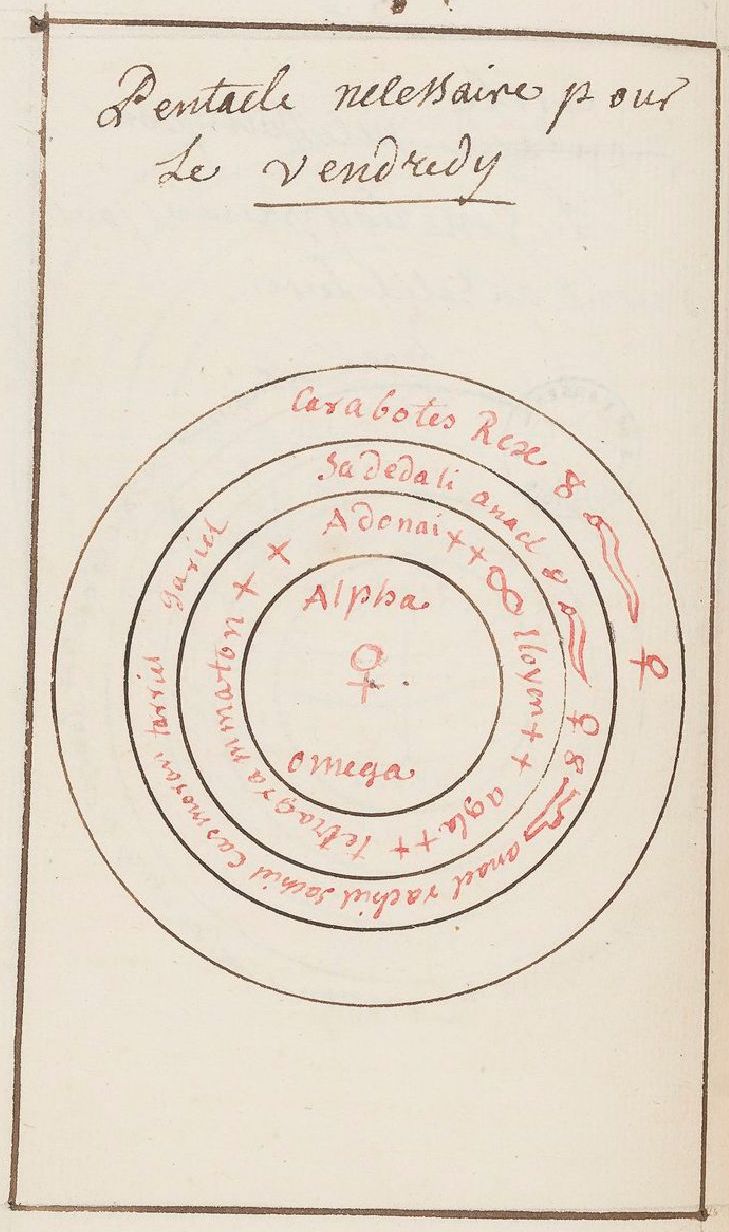 Pentacle necessaire pour
Le vendredy
Carabotes Rex 8 ♀
Sadedali anael 8 ♀ 8 anael rachiel sachiel Casmoran tarriel gariel
Adonai ++ 8 Eloyem ++ agla ++ tetragrammaton ++
Alpha
♀
omega